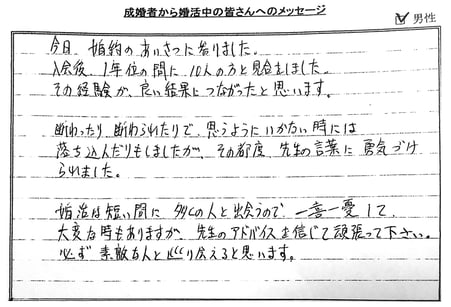 成婚者から婚活中の皆さんへのメッセージ
男性
今日、婚約のあいさつに参りました。
入会後、1年位の間に10人の方と見合をしました。
その経験が、良い結果につながったと思います。
断わったり、断わられたりで、思うようにいかない時には
落ち込んだりもしましたが、その都度、先生の言葉に勇気づけ
られました。
婚活は短い間に多くの人と出会うので、一喜一憂して、
大変な時もありますが、先生のアドバイスを信じて頑張って下さい。
必ず素敵な人と巡り会えると思います。